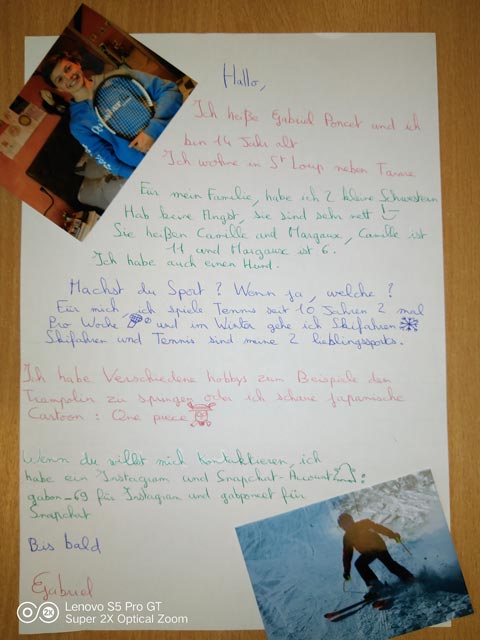 Hallo,
Ich heiße Gabriel Poncet und ich
bin 14 Jahr alt
Ich wohne in St Loup neben Tarare
Für mein Familie, habe ich 2 kleine Schwestern
Hab keine Angst, sie sind sehr nett !
Sie heißen Camille und Margaux, Camille ist
11 und Margaux ist 6.
Ich habe auch einen Hund.
Machst du Sport ? Wenn ja, welche ?
Für mich, ich spiele Tennis seit 10 Jahren 2 mal
Pro Woche und im Winter gehe ich Skifahren
Skifahren und Tennis sind meine 2 lieblingssports.
Ich habe Verschiedene hobbys zum Beispiele den
Trampolin zu springen oder ich schaue japanische
Cartoon : One piece
Wenn du willst mich kontaktieren, ich
habe ein Instagram und Snapchat-Account :
gabon_69 für Instagram und gabponcet für
Snapchat
Bis bald
Gabriel
Lenovo S5 Pro GT
Super 2X Optical Zoom
2X